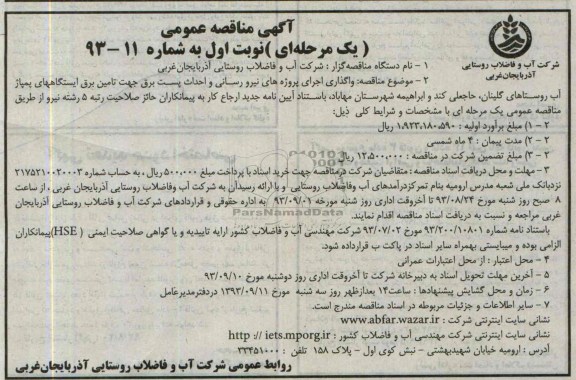 آگهی مناقصه عمومی
( یک مرحله‌ای )نوبت اول به شماره ۱۱-۹۳
شرکت آب و فاضلاب روستایی
آذربایجان‌غربی
۱ - نام دستگاه مناقصه‌گزار : شرکت آب و فاضلاب روستایی آذربایجان‌غربی
۲ - موضوع مناقصه: واگذاری اجرای پروژه های نیرو رسانی و احداث پست برق جهت تامین برق ایستگاههای پمپاژ
آب روستاهای گلینان، حاجعلی کند و ابراهیمه شهرستان مهاباد، باستناد آیین نامه جدید ارجاع کار به پیمانکاران حائز صلاحیت رتبه ۵ رشته نیرو از طریق
مناقصه عمومی یک مرحله ای با مشخصات و شرایط کلی ذیل:
۲ - ۱) مبلغ برآورد اولیه : ۱،۹۲۳،۱۸۰،۵۹۰ ریال
۲ - ۲) مدت پیمان : ۴ ماه شمسی
۲ - ۳) مبلغ تضمین شرکت در مناقصه : ۱۲،۵۰۰،۰۰۰ ریال
۳ - مهلت و محل دریافت اسناد مناقصه : متقاضیان شرکت درمناقصه جهت خرید اسناد با پرداخت مبلغ ۵۰۰،۰۰۰ ریال ، به حساب شماره ۲۱۷۵۲۱۰۰۲۰۰۰۳
نزدبانک ملی شعبه مدرس ارومیه بنام تمرکزدرآمدهای آب وفاضلاب روستایی و با ارائه رسیدآن به شرکت آب وفاضلاب روستایی آذربایجان غربی ، از ساعت
۸ صبح روز شنبه مورخ ۹۳/۰۸/۲۴ تا آخروقت اداری روز شنبه مورخه ۹۳/۰۹/۰۱ به اداره حقوقی و قراردادهای شرکت آب و فاضلاب روستایی آذربایجان
غربی مراجعه و نسبت به دریافت اسناد مناقصه اقدام نمایند.
باستناد نامه شماره ۹۳/۲۰۰/۱۰۸۰۱ مورخ ۹۳/۰۷/۰۲ شرکت مهندسی آب و فاضلاب کشور ارایه تاییدیه و یا گواهی صلاحیت ایمنی ( HSE )پیمانکاران
الزامی بوده و میبایستی بهمراه سایر اسناد در پاکت ب قرارداده شود.
۴ - محل اعتبار : از محل اعتبارات عمرانی
۵ - آخرین مهلت تحویل اسناد به دبیرخانه شرکت تا آخروقت اداری روز دوشنبه مورخ ۹۳/۰۹/۱۰
۶ - زمان و محل گشایش پیشنهادها : ساعت۱۴ بعدازظهر روز سه شنبه مورخ ۱۳۹۳/۰۹/۱۱ دردفترمدیرعامل
۷ - سایر اطلاعات و جزئیات مربوطه در اسناد مناقصه مندرج است.
نشانی سایت اینترنتی شرکت : www.abfar.wazar.ir
نشانی سایت اینترنتی شرکت مهندسی آب و فاضلاب کشور : http :// iets.mporg.ir
آدرس : ارومیه خیابان شهیدبهشتی - نبش کوی اول - پلاک ۱۵۸ تلفن : ۳۳۴۵۱۰۰۰
روابط عمومی شرکت آب و فاضلاب روستایی آذربایجان‌غربی
ParsNamadData